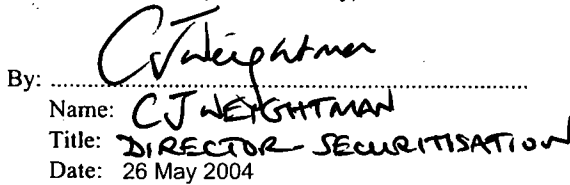 By: CJWeightman
Name: CJ WEIGHTMAN
Title: DIRECTOR SECURITISATION
Date: 26 May 2004